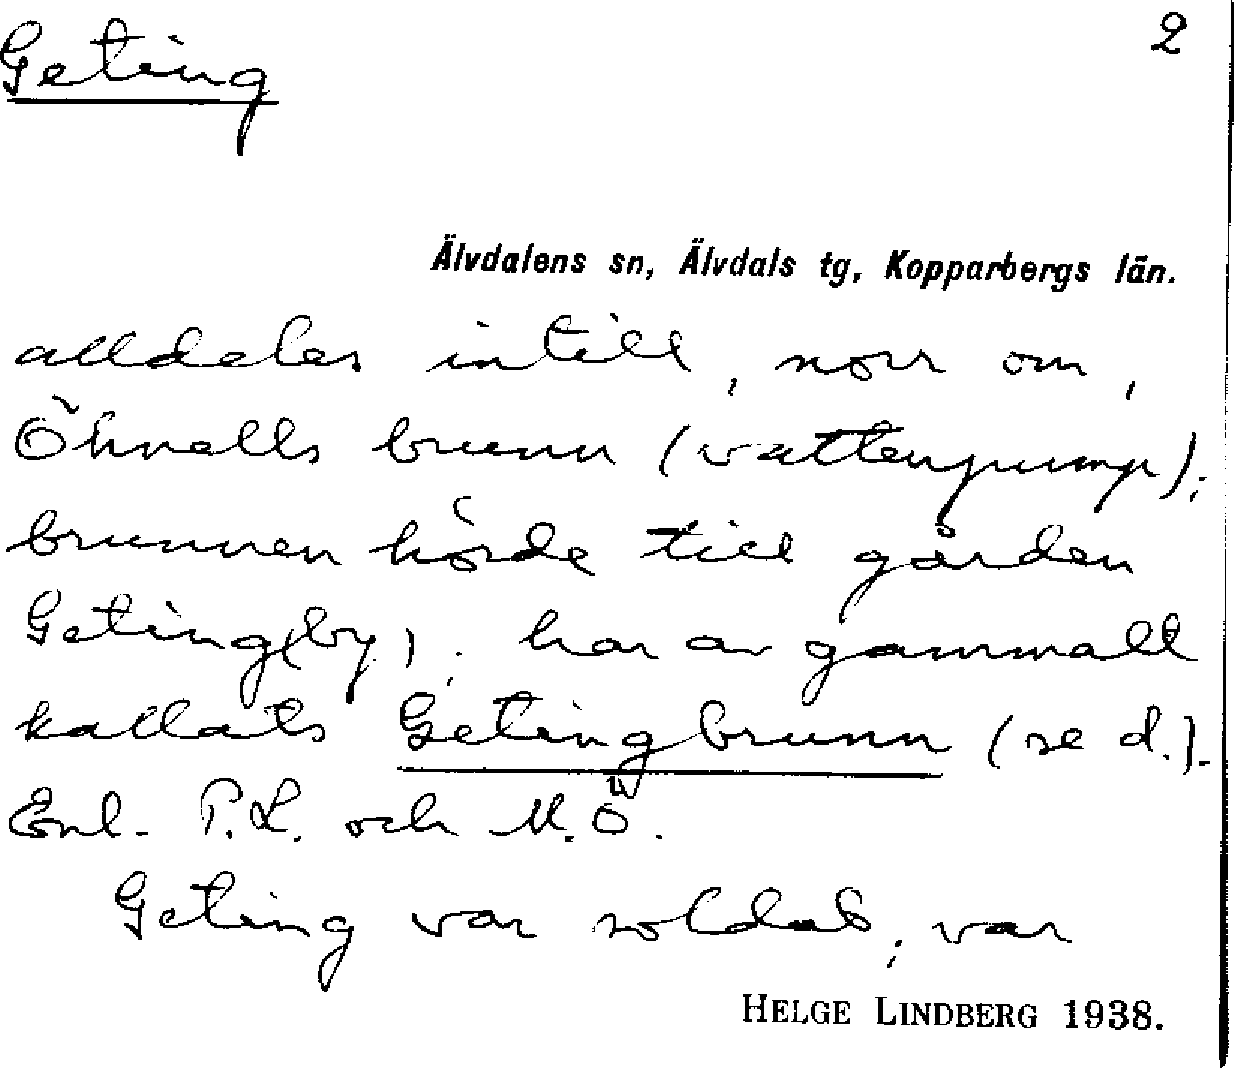 Geting
2
Älvdalens sn, Älvdals tg, Kopparbergs län.
alldeles intill, norr om,
Öhnells brunn (vattenpump);
brunnen hörde till gården
Geting(by); har av gammalt
kallats Getingbrunn (se d.).
Enl. P.L. och M.Ö.
Geting var soldat; var
HELGE LINDBERG 1938.